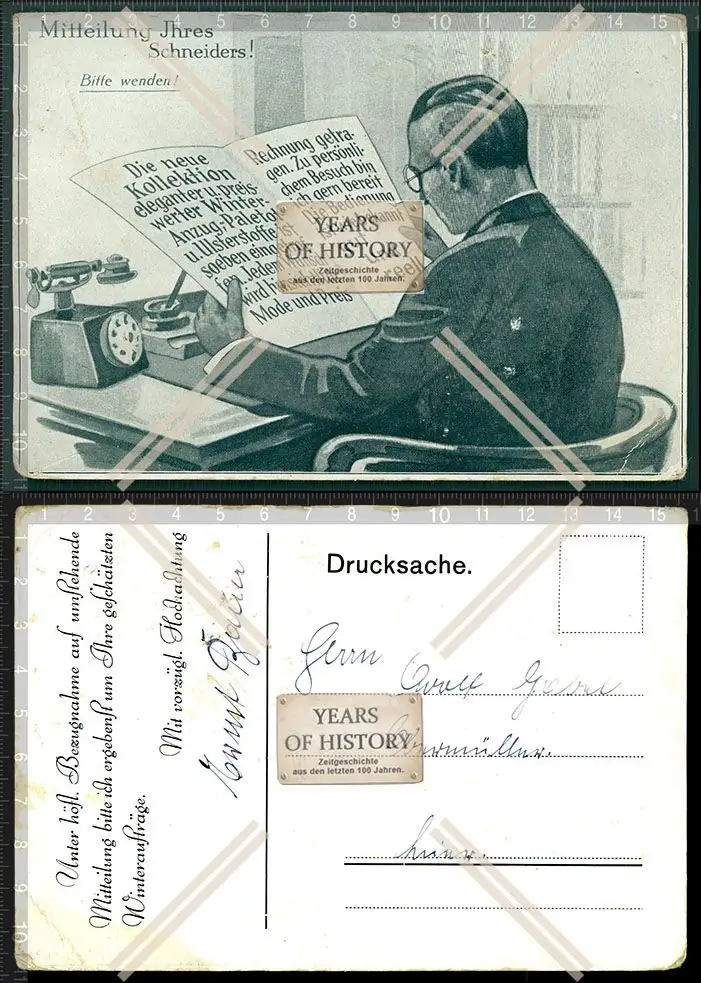 Mitteilung Ihres
Schneiders!
Bitte wenden!
Die neue
Kollektion
eleganter u. preis-
werter Winter-
Anzug-, Paletot
u. Ulsterstoffe
soeben ein
Jedem
wird
Mode und Preis
Rechnung getra-
gen. Zu persönli-
chem Besuch bin
ich gern bereit
Die Bedienung
ist
reell
YEARS
OF HISTORY
Zeitgeschichte
aus den letzten 100 Jahren.
Unter höfl. Bezugnahme auf umstehende
Mitteilung bitte ich ergebenst um Ihre geschätzten
Winteraufträge.
Mit vorzügl. Hochachtung
Ernst
Drucksache.
Herrn
Adolf
hier.
YEARS
OF HISTORY
Zeitgeschichte
aus den letzten 100 Jahren.